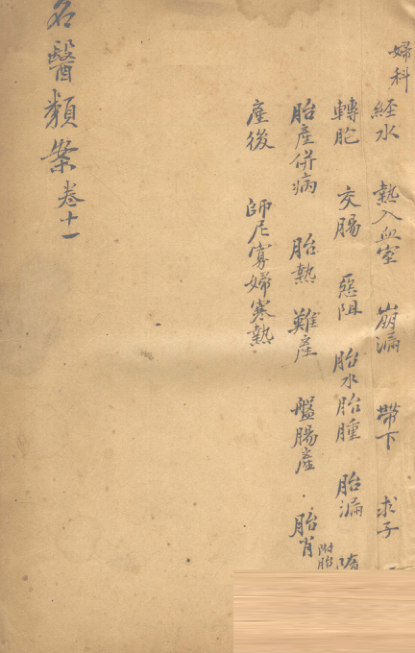 婦科
經水 熱入血室 崩漏 帶下 求子
轉胞 交腸 惡阻 胎水胎腫 胎漏
附胎
胎產併病 胎熱 難產 盤腸產 胎肖
產後 師尼寡婦寒熱
名醫類案 卷十一